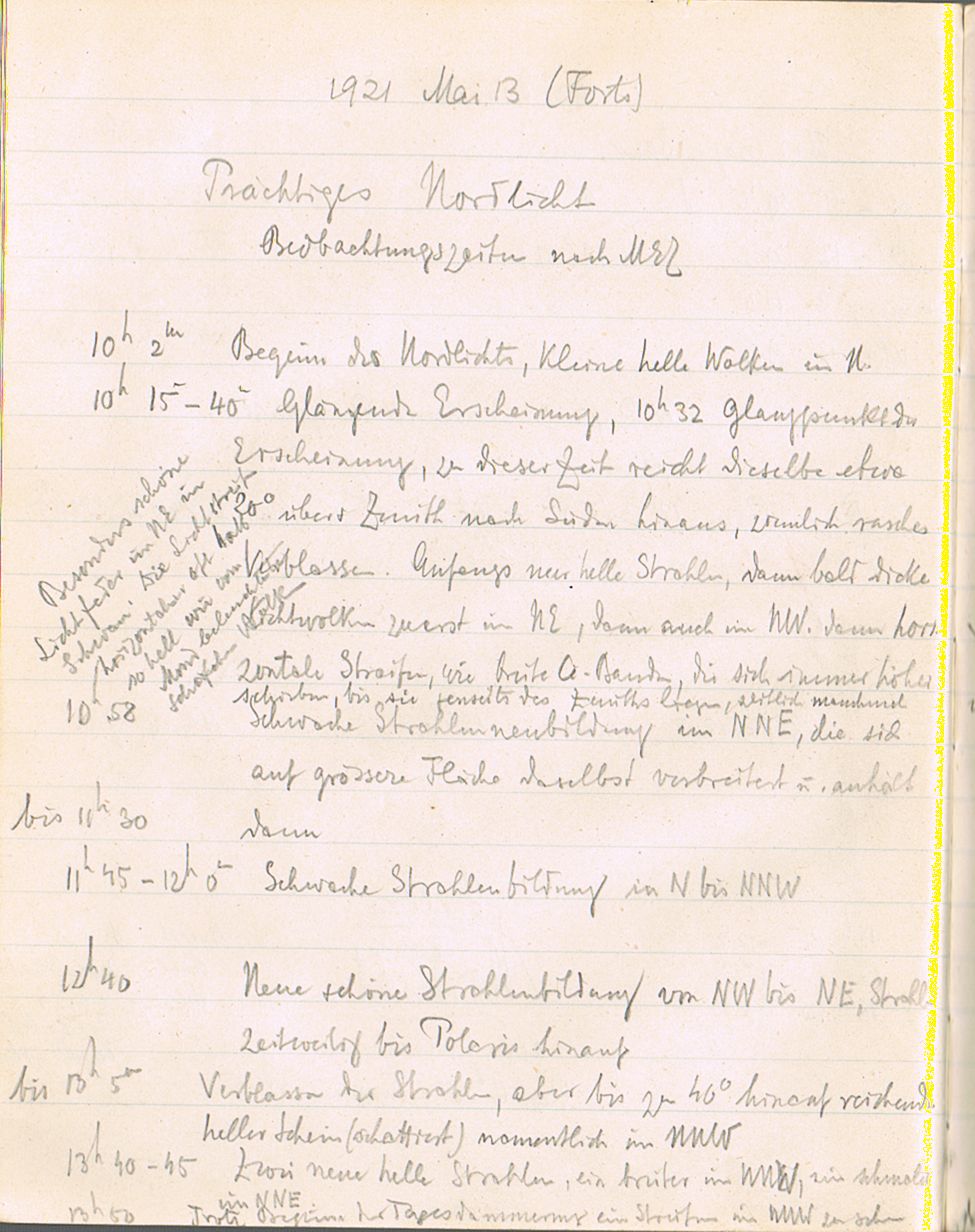 1921 Mai 13 (Forts)
Prächtiges Nordlicht
Beobachtungszeiten nach MEZ
10h 2m Beginn des Nordlichts, kleine helle Wolken im N.
10h 15m - 40m Glänzende Erscheinung, 10h 32 Glanzpunkt der
Erscheinung, zu dieser Zeit reicht dieselbe etwa
50° übers Zenith nach Süden hinaus, ziemlich rasches
Verblassen. Anfangs nur helle Strahlen, dann bald dicke
Lichtwolken zuerst im NE, dann auch im NW. dann hori-
zontale Streifen, wie breite Ci-Banden, die sich immer höher
schieben, bis sie jenseits des Zeniths liegen, zeitlich manchmal
Besonders schöne
Lichtfeder im NE im
Schwan. Die Lichtstreif
horizontaler oft halb
so hell wie vom
Mond beleuchtete
Schäfchen Wolke
10h 58 Schwache Strahlenneubildung im NNE, die sich
auf grössere Fläche daselbst verbreitert u. anhält
bis 11h 30 dann
11h 45 - 12h 0m Schwache Strahlenbildung in N bis NNW
12h 40 Neue schöne Strahlenbildung von NW bis NE, Strahl
zeitweilig bis Polaris hinauf
bis 13h 5m Verblassen der Strahlen, aber bis zu 40° hinauf reichend
heller Schein (schattiert) namentlich im NNW
13h 40 - 45 Zwei neue helle Strahlen, ein breiter im NNW, ein schmaler
im NNE
13h 50 Trotz Beginn der Tagesdämmerung ein Streifen im NNW zu sehen